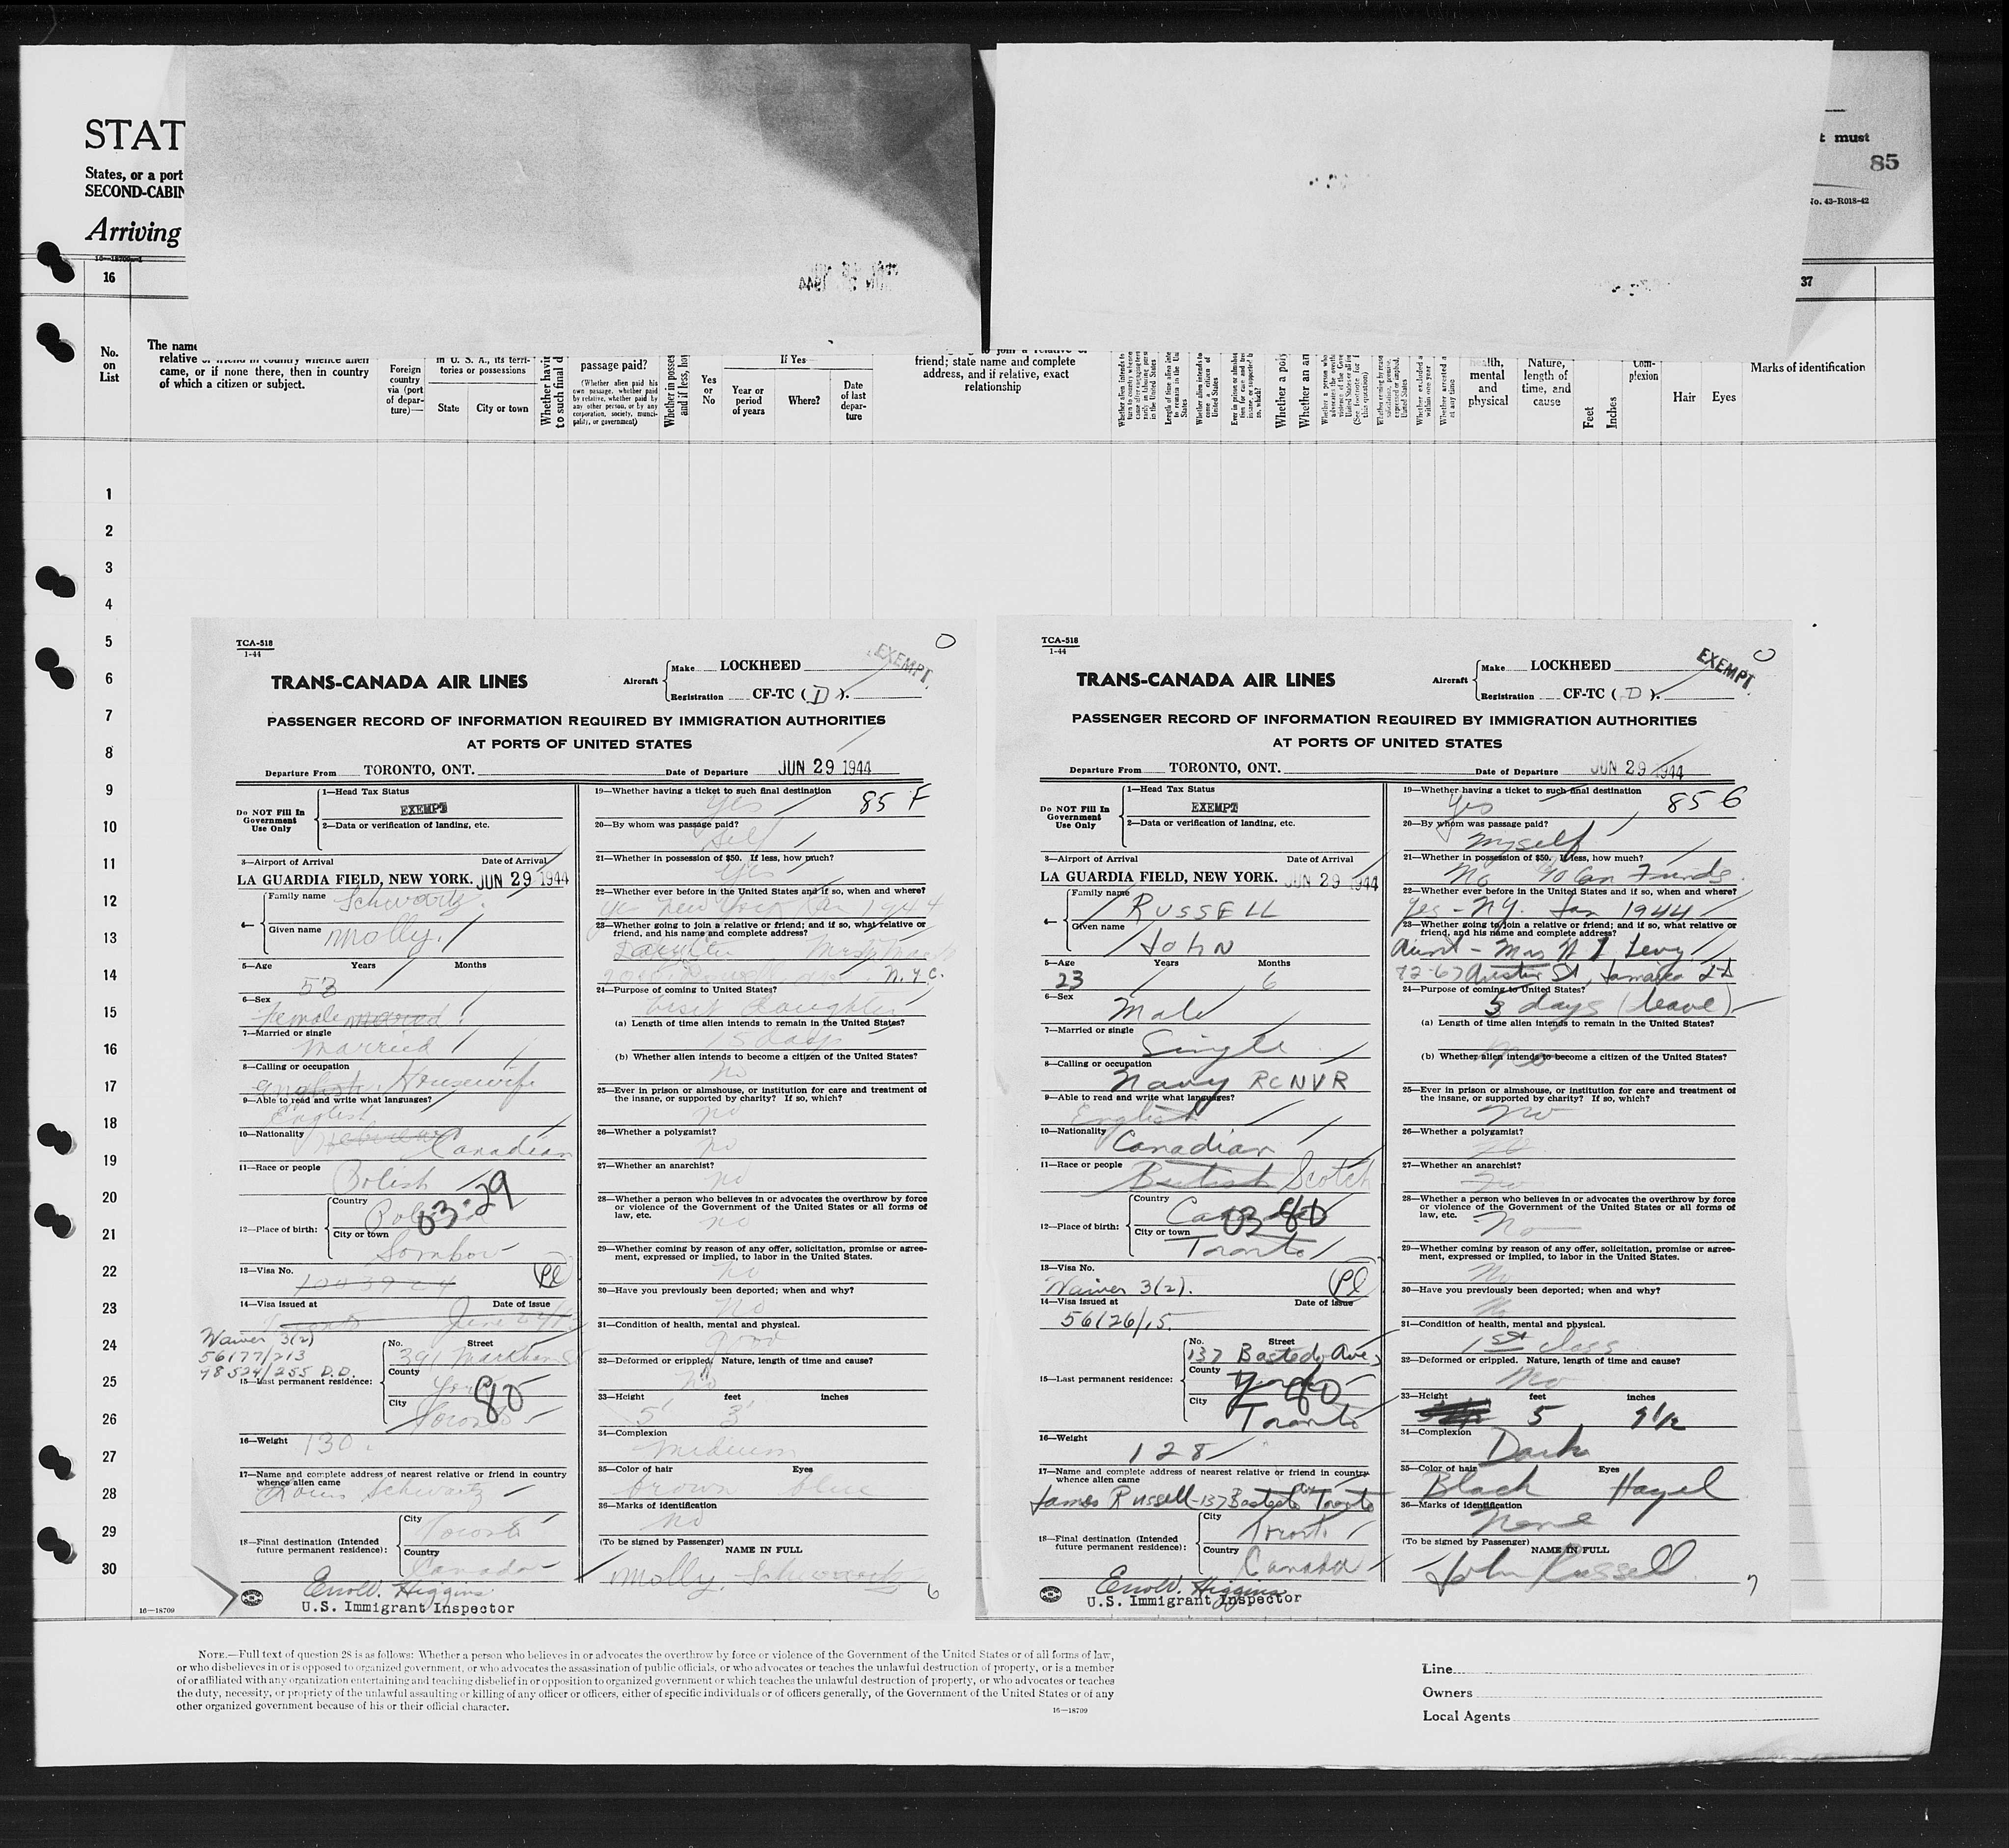 STAT
States, or a port
SECOND-CABIN
Arriving
t must
85
No. 43-R018-42
16
37
No. on List
The name
relative or friend in country whence alien
came, or if none there, then in country
of which a citizen or subject.
Foreign country via (port of departure)—
in U. S. A., its territories or possessions
State
City or town
Whether havi
to such final d
passage paid?
(Whether alien paid his own passage, whether paid by relative, whether paid by any other person, or by any corporation, society, municipality, or government)
Whether in posses
and if less, ho
Yes or No
If Yes—
Year or period of years
Where?
Date of last departure
to join a relative or
friend; state name and complete
address, and if relative, exact
relationship
Whether a poly
Whether an an
health, mental and physical
Nature, length of time, and cause
Feet
Inches
Complexion
Hair
Eyes
Marks of identification
1
2
3
4
5
6
7
8
9
10
11
12
13
14
15
16
17
18
19
20
21
22
23
24
25
26
27
28
29
30
TCA-518
1-44
EXEMPT
TRANS-CANADA AIR LINES
Aircraft
Make LOCKHEED
Registration CF-TC ( D ).
PASSENGER RECORD OF INFORMATION REQUIRED BY IMMIGRATION AUTHORITIES
AT PORTS OF UNITED STATES
Departure From TORONTO, ONT. Date of Departure JUN 29 1944
Do NOT Fill In Government Use Only
1—Head Tax Status
EXEMPT
2—Data or verification of landing, etc.
3—Airport of Arrival Date of Arrival
LA GUARDIA FIELD, NEW YORK. JUN 29 1944
4— Family name Schwartz.
Given name Molly.
5—Age Years Months
53
6—Sex
Female
7—Married or single
Married
8—Calling or occupation
English Housewife
9—Able to read and write what languages?
English
10—Nationality
Hebrew Canadian
11—Race or people
Polish
12—Place of birth: Country
03·29
City or town
Sombor
13—Visa No.
1003924
Pl
14—Visa issued at Date of issue
Toronto June
Waiver 3(2)
56177/213
98524/255 D.D.
15—Last permanent residence: No. Street
391 Markham St
County
York
80
City
Toronto
16—Weight 130.
17—Name and complete address of nearest relative or friend in country
whence alien came
Louis Schwartz
18—Final destination (Intended
future permanent residence):
City
Toronto
Country
Canada
Errol V. Higgins
U.S. Immigrant Inspector
19—Whether having a ticket to such final destination
Yes 85 F
20—By whom was passage paid?
Self
21—Whether in possession of $50. If less, how much?
Yes
22—Whether ever before in the United States and if so, when and where?
yes New York Jan 1944
23—Whether going to join a relative or friend; and if so, what relative or
friend, and his name and complete address?
Daughter Mrs
N.Y.C.
24—Purpose of coming to United States?
Visit daughter
(a) Length of time alien intends to remain in the United States?
15 days
(b) Whether alien intends to become a citizen of the United States?
no
25—Ever in prison or almshouse, or institution for care and treatment of
the insane, or supported by charity? If so, which?
no
26—Whether a polygamist?
no
27—Whether an anarchist?
no
28—Whether a person who believes in or advocates the overthrow by force
or violence of the Government of the United States or all forms of
law, etc.
no
29—Whether coming by reason of any offer, solicitation, promise or agree-
ment, expressed or implied, to labor in the United States.
no
30—Have you previously been deported; when and why?
No
31—Condition of health, mental and physical.
Good
32—Deformed or crippled. Nature, length of time and cause?
No
33—Height feet inches
5' 3'
34—Complexion
Medium
35—Color of hair Eyes
brown blue
36—Marks of identification
no
(To be signed by Passenger)
NAME IN FULL
Molly. Schwartz
6
TCA-518
1-44
EXEMPT
TRANS-CANADA AIR LINES
Aircraft
Make LOCKHEED
Registration CF-TC ( D ).
PASSENGER RECORD OF INFORMATION REQUIRED BY IMMIGRATION AUTHORITIES
AT PORTS OF UNITED STATES
Departure From TORONTO, ONT. Date of Departure JUN 29 1944
Do NOT Fill In Government Use Only
1—Head Tax Status
EXEMPT
2—Data or verification of landing, etc.
3—Airport of Arrival Date of Arrival
LA GUARDIA FIELD, NEW YORK. JUN 29 1944
4— Family name RUSSELL
Given name JOHN
5—Age Years Months
23 6
6—Sex
Male
7—Married or single
Single
8—Calling or occupation
Navy RCNVR
9—Able to read and write what languages?
English
10—Nationality
Canadian
11—Race or people
British Scotch
12—Place of birth: Country
Canada
03 80
City or town
Toronto
13—Visa No.
Waiver 3(2).
Pl
14—Visa issued at Date of issue
56126/15.
15—Last permanent residence: No. Street
137 Bastedo Ave
County
York
80
City
Toronto
16—Weight
128
17—Name and complete address of nearest relative or friend in country
whence alien came
James Russell-137 Bastedo Ave Toronto
18—Final destination (Intended
future permanent residence):
City
Toronto
Country
Canada
Errol V. Higgins
U.S. Immigrant Inspector
19—Whether having a ticket to such final destination
Yes 85 G
20—By whom was passage paid?
Myself
21—Whether in possession of $50. If less, how much?
No 40 Can Funds.
22—Whether ever before in the United States and if so, when and where?
Yes - N.Y. Jan 1944
23—Whether going to join a relative or friend; and if so, what relative or
friend, and his name and complete address?
Aunt - Mrs N J Levy
72-67 Austin St, Jamaica LI
24—Purpose of coming to United States?
3 days (leave)
(a) Length of time alien intends to remain in the United States?
(b) Whether alien intends to become a citizen of the United States?
No
25—Ever in prison or almshouse, or institution for care and treatment of
the insane, or supported by charity? If so, which?
No
26—Whether a polygamist?
27—Whether an anarchist?
No
28—Whether a person who believes in or advocates the overthrow by force
or violence of the Government of the United States or all forms of
law, etc.
No
29—Whether coming by reason of any offer, solicitation, promise or agree-
ment, expressed or implied, to labor in the United States.
No
30—Have you previously been deported; when and why?
No
31—Condition of health, mental and physical.
1st class
32—Deformed or crippled. Nature, length of time and cause?
No
33—Height feet inches
5 9 1/2
34—Complexion
Dark
35—Color of hair Eyes
Black Hazel
36—Marks of identification
None
(To be signed by Passenger)
NAME IN FULL
John Russell
7
16—18709
NOTE.—Full text of question 28 is as follows: Whether a person who believes in or advocates the overthrow by force or violence of the Government of the United States or of all forms of law,
or who disbelieves in or is opposed to organized government, or who advocates the assassination of public officials, or who advocates or teaches the unlawful destruction of property, or is a member
of or affiliated with any organization entertaining and teaching disbelief in or opposition to organized government or which teaches the unlawful destruction of property, or who advocates or teaches
the duty, necessity, or propriety of the unlawful assaulting or killing of any officer or officers, either of specific individuals or of officers generally, of the Government of the United States or of any
other organized government because of his or their official character.
16—18709
Line
Owners
Local Agents